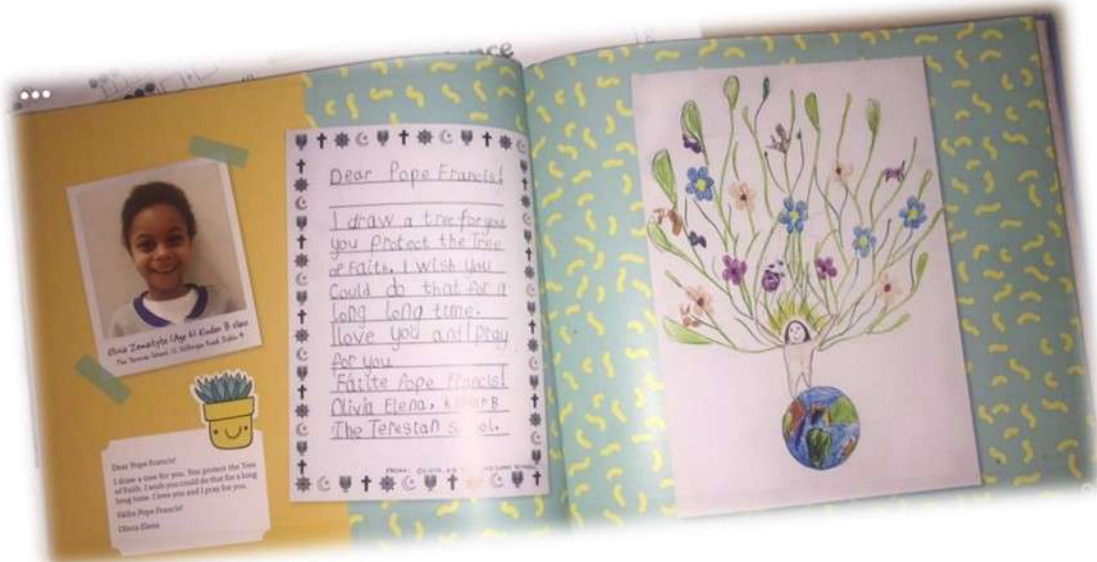 ce
Olivia
(Age 6) Kinder B class
The Teresian School, 12, Stillorgan Road, Dublin 4
Dear Pope Francis!
I draw a tree for you. You protect the Tree
of Faith. I wish you could do that for a long
long time. I love you and I pray for you.
Fáilte Pope Francis!
Olivia Elena
Dear Pope Francis!
I draw a tree for you
you Protect the Tree
of Faith. I wish you
Could do that for a
long long time.
I love you and I pray
for you
Fáilte Pope Francis!
Olivia Elena, B
The Teresian